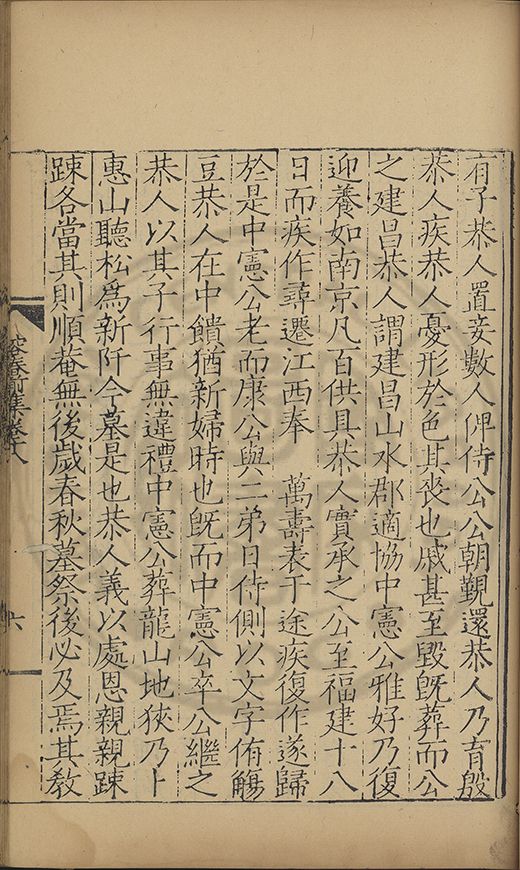 有子恭人置妾數人俾侍公公朝覲還恭人乃育殷
恭人疾恭人憂形於色其喪也戚甚至毀旣葬而公
之建昌恭人謂建昌山水郡適協中憲公雅好乃復
迎養如南京凡百供具恭人實承之公至福建十八
日而疾作尋遷江西奉　萬壽表于途疾復作遂歸
於是中憲公老而康公與二弟日侍側以文字侑觴
豆恭人在中饋猶新婦時也旣而中憲公卒公繼之
恭人以其子行事無違禮中憲公葬龍山地狹乃卜
惠山聽松爲新阡今墓是也恭人義以處恩親親踈
踈各當其則順菴無後歲春秋墓祭後必及焉其敎
容春前集卷十八
六